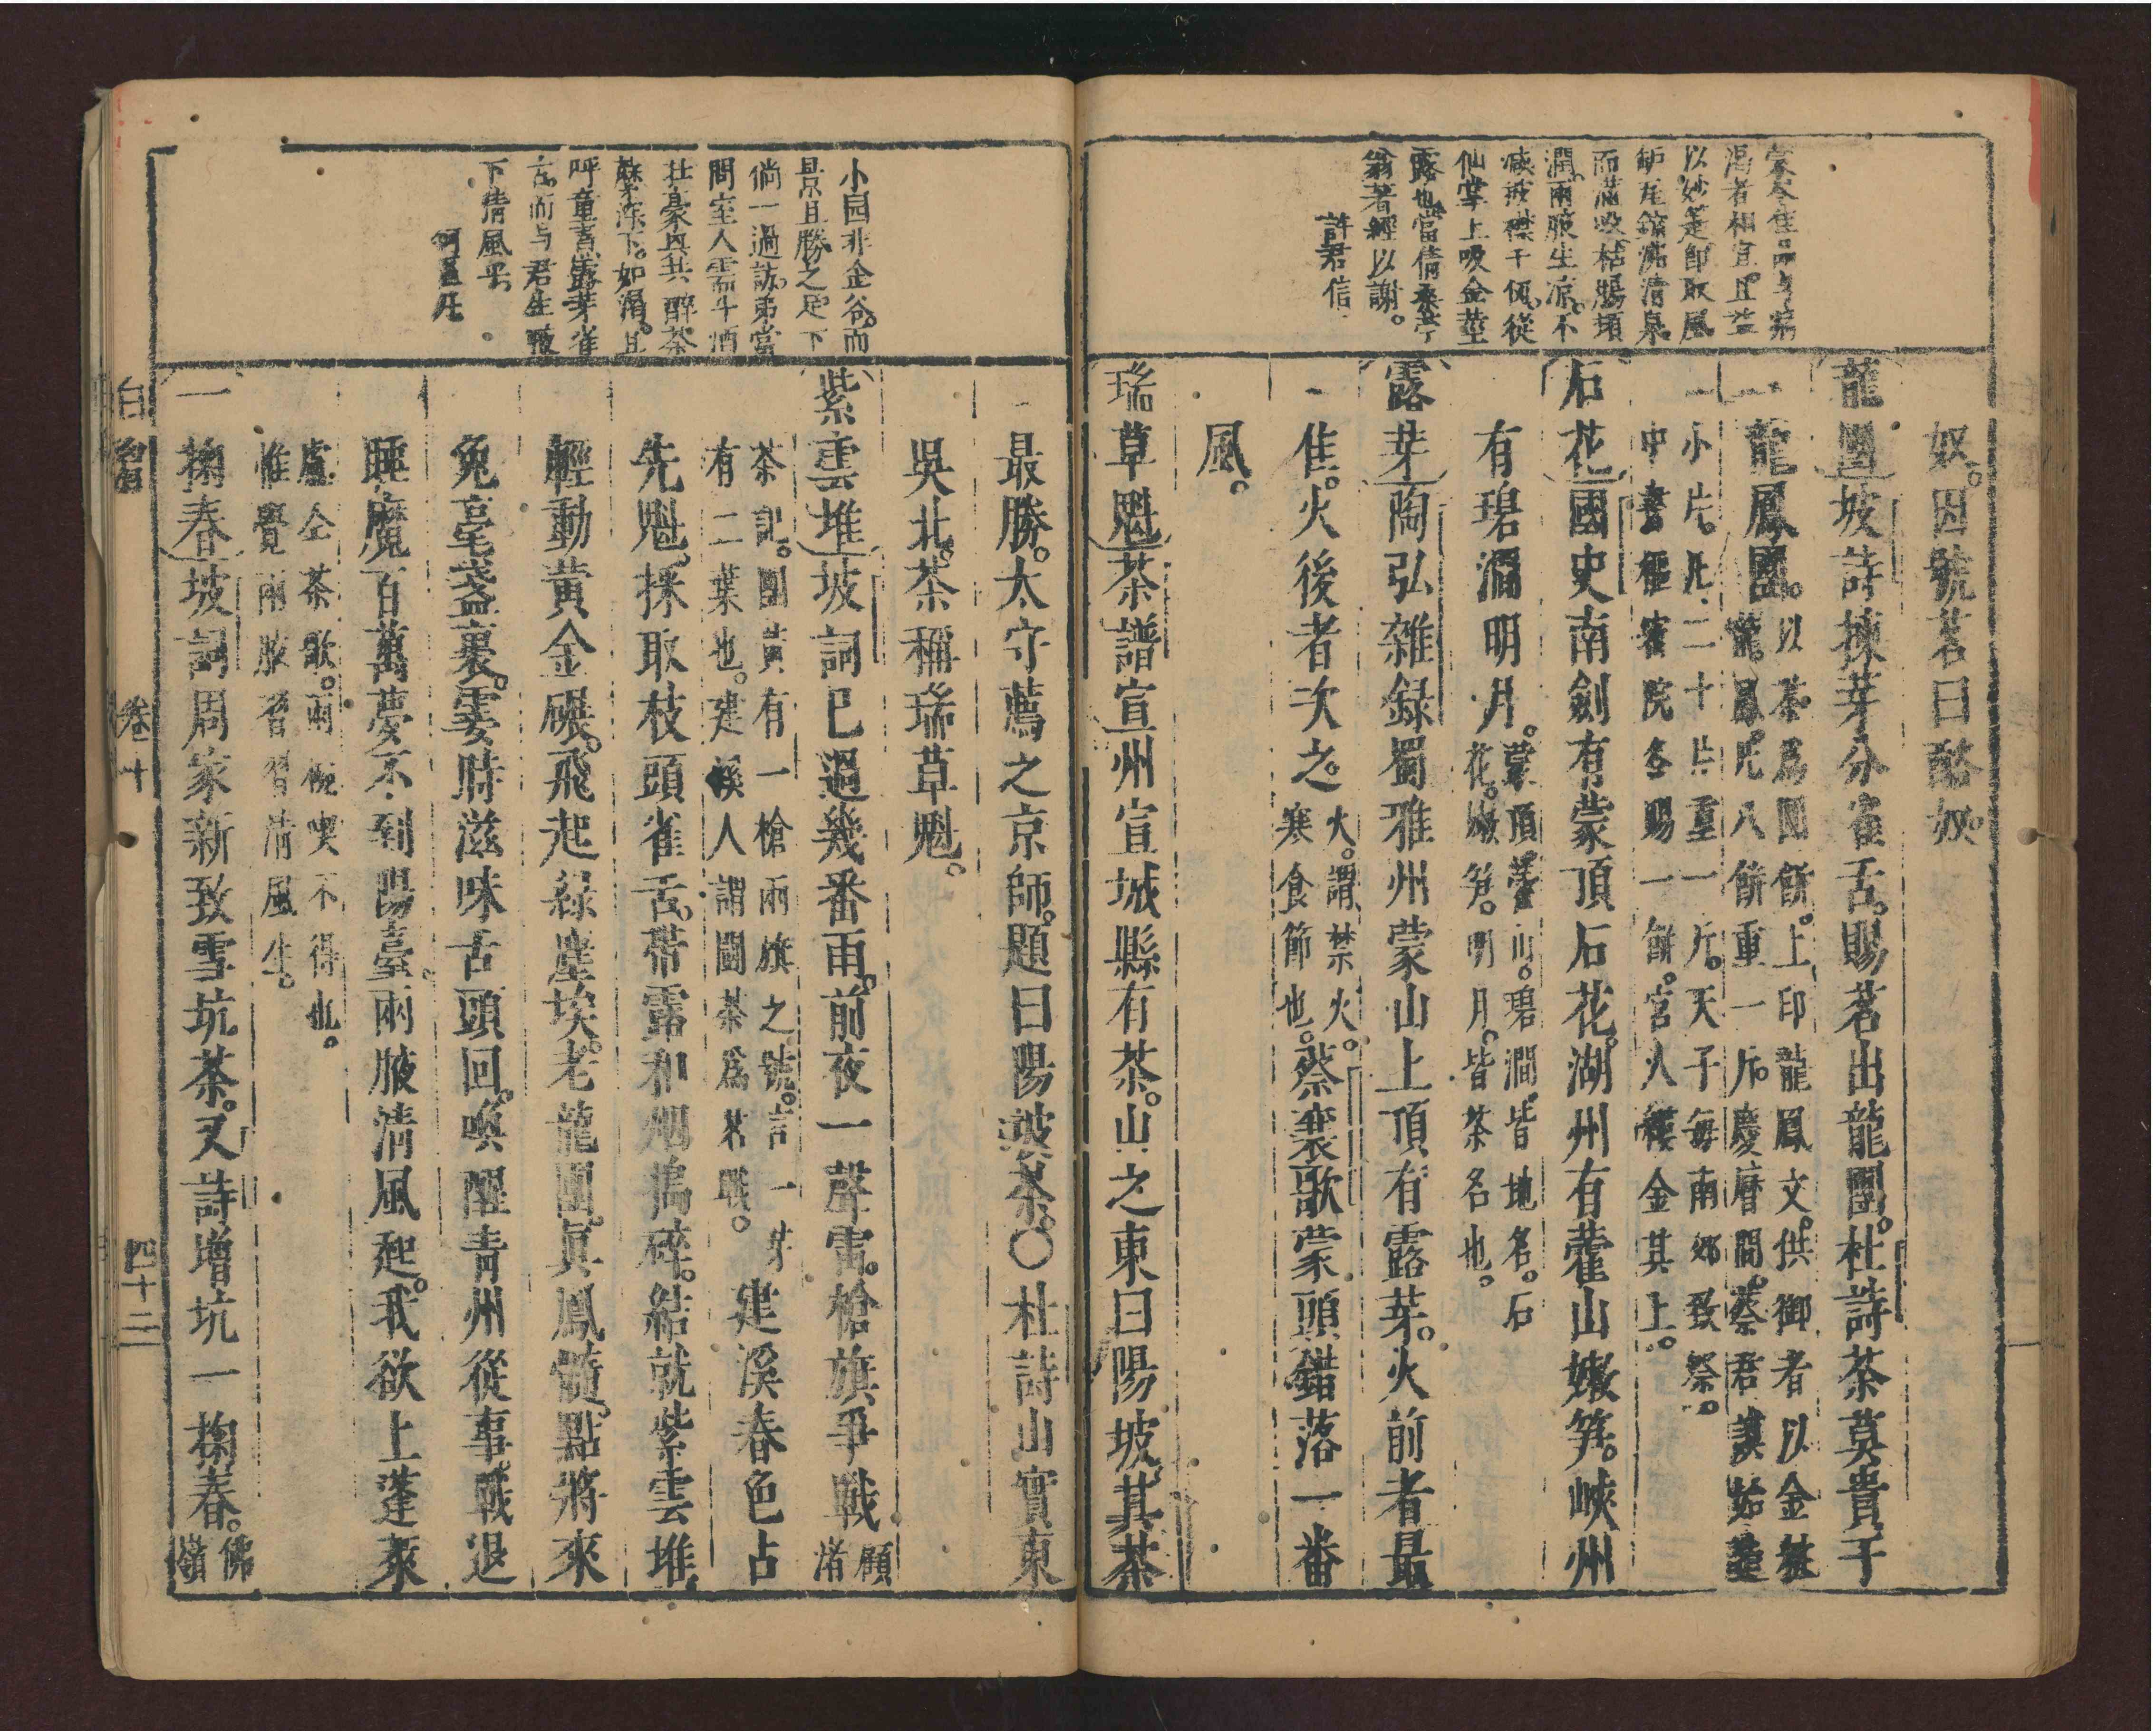 蒙令隹品与病
渴者相宜且茲
以妙筆即取風
爐瀉清泉
而滿吸枯腸頓
潤兩腋生凉不
減披襟千仞從
仙掌上吸金莖
露也當倩桑苧
翁著經以謝
許君信
奴因號茗曰酪奴
龍團坡詩揀芽分雀舌賜茗出龍團杜詩茶莫貴于
龍鳳團以茶爲團餅上印龍鳳文供御者以金粧
龍鳳凡八餅重一斤慶曆間蔡君謨始造
小片凡二十片重一斤天子每南郊致祭
中書樞密院各賜一餅宮人縷金其上
石花國史南劍有蒙頂石花湖州有藿山嫩笋峽州
有碧澗明月蒙頂藿山碧澗皆地名石
花嫩笋明月皆茶名也
露芽陶弘雜録蜀雅州蒙山上頂有露芽火前者最
隹火後者次之火謂禁火
寒食節也蔡襄歌蒙頭錯落一番
風
瑞草魁茶譜宣州宣城縣有茶山之東曰陽坡其茶
小园非金谷而
景且勝之足下
倘一過訪弟當
問室人需斗酒
壯豪興共醉茶
蘼深下如渴且
呼童煮露芽雀
舌而与君生腋
下倩風乎
最勝太守薦之京師題曰陽坡茶〇杜詩山實東
吳北茶稱瑞草魁
紫雲堆坡詞巳過幾番雨前夜一聲雷槍旗爭戰顧
渚
茶記團黄有一槍兩旗之號言一芽
有二葉也建溪人謂鬬茶爲茗戰建溪春色占
先魁採取枝頭雀舌帶露和烟搗碎結就紫雲堆
輕動黄金碾飛起緑塵埃老龍團真鳳髓點將來
兔毫盞裏霎時滋味舌頭回喚醒青州從事戰退
睡魔百萬夢不到陽臺兩腋清風起我欲上蓬萊
盧仝茶歌兩椀喫不得也
惟覺兩腋習習清風生
一掬春坡詞周家新致雪坑茶又詩增坑一掬春佛
嶺
卷十
四十二